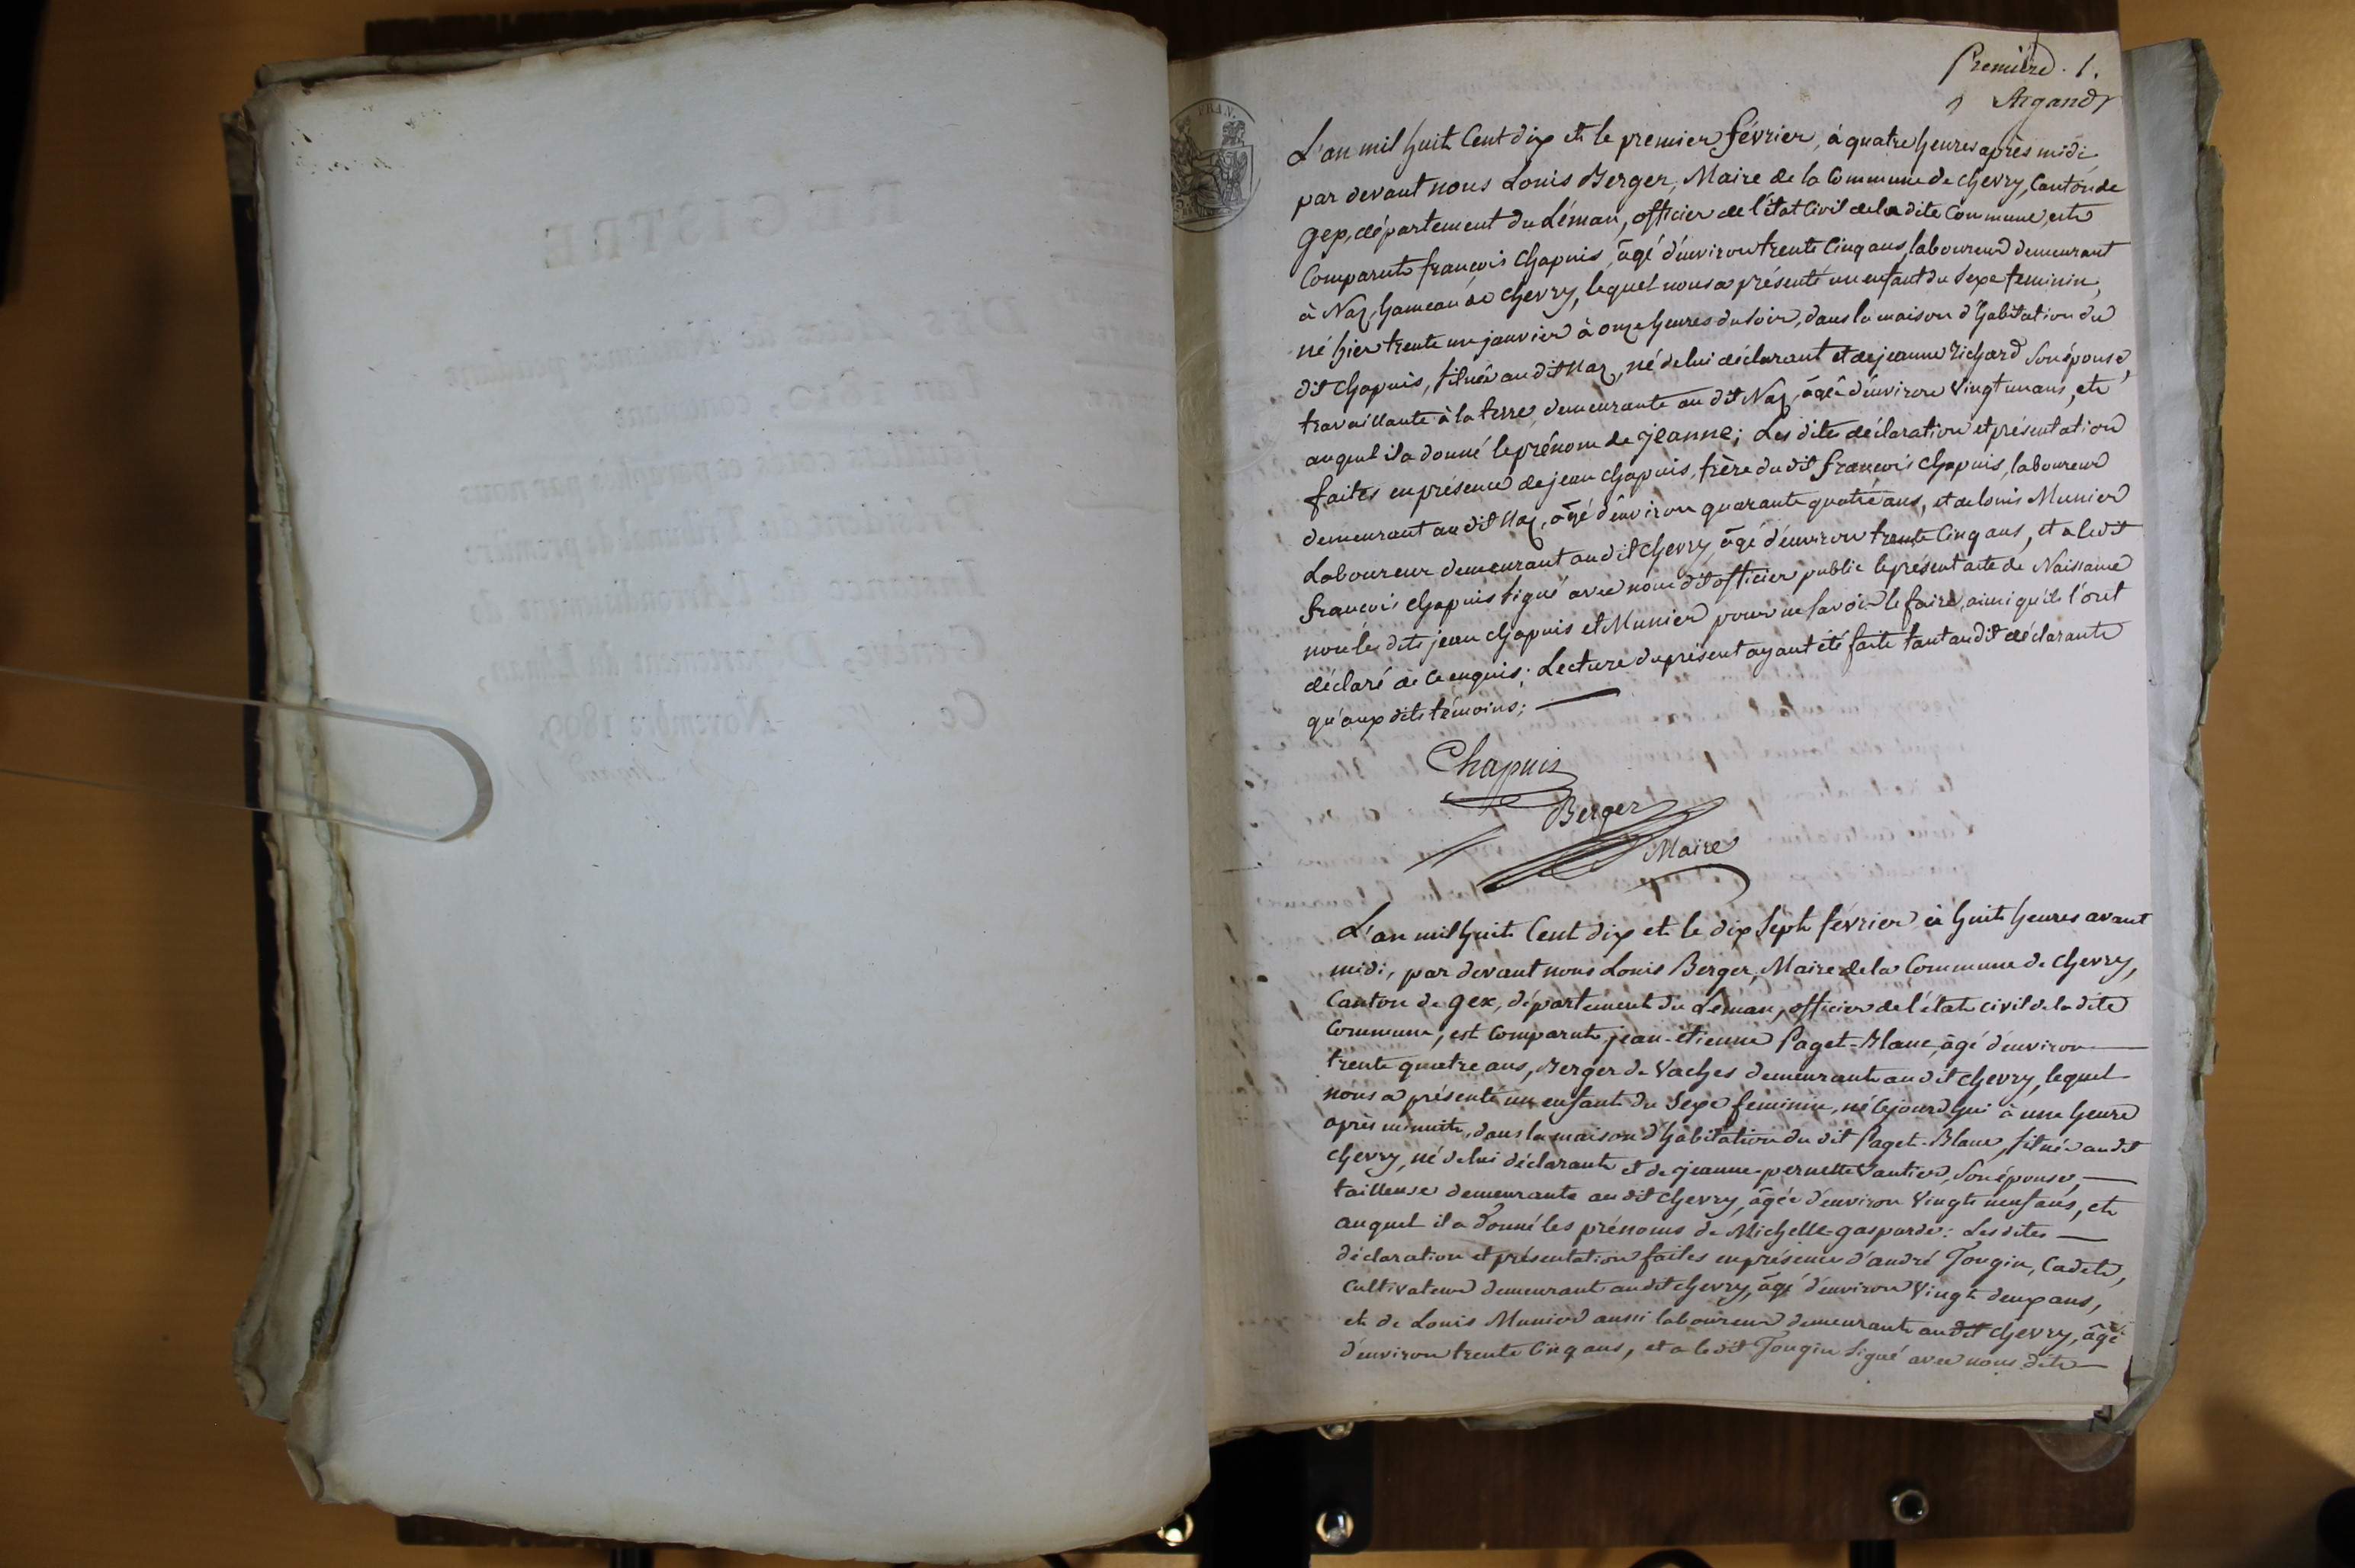 Première. 1.
Argand
L'an mil huit Cent dix et le premier février, à quatre heures après midi
par devant nous Louis Berger, Maire de la Commune de chevry, Canton de
gex, département du Léman, officier de l'état Civil de la dite Commune, est
Comparut françois Chapuis, âgé d'environ trente Cinq ans, laboureur demeurant
à Naz, hameau de chevry, lequel nous a présenté un enfant du Sexe feminin,
né hier trente un janvier à onze heures du soir, dans la maison d'habitation du
dit Chapuis, située au dit Naz, né de lui déclarant et de jeanne Richard Son épouse,
travaillante à la terre demeurante au dit Naz, âgée d'environ Vingt un ans, et
auquel il a donné le prénom de Jeanne; Les dites déclaration et présentation
faites en présence de jean Chapuis, frère du dit françois Chapuis, laboureur
demeurant au dit Naz, âgé d'environ quarante quatre ans, et de louis Munier
Laboureur demeurant au dit Chevry, âgé d'environ trente Cinq ans, et a le dit
françois Chapuis Signé avec nous dit officier public le présent acte de Naissance
non les dits jean Chapuis et Munier pour ne savoir le faire, ainsi qu'ils l'ont
déclaré de Ce enquis; Lecture du présent ayant été faite tant au dit déclarant
qu'aux dits témoins;
Chapuis
Berger
Maire
L'an mil huit Cent dix et le dix Sept février à huit heures avant
midi, par devant nous Louis Berger, Maire de la Commune de chevry,
Canton de gex, département du Léman, officier de l'état civil de la dite
Commune, est Comparut jean-étienne Paget-Blanc, âgé d'environ
trente quatre ans, Berger de Vaches demeurant au dit chevry, lequel
nous a présenté un enfant du Sexe feminin, né Cejourd'hui à une heure
après minuit, dans la maison d'habitation du dit Paget-Blanc, située au dit
chevry, né de lui déclarant et de jeanne-pernette Vautier, Son épouse,
tailleuse demeurante au dit chevry, âgée d'environ Vingt neuf ans, et
auquel il a donné les prénoms de Michelle-gasparde: Les dites
déclaration et présentation faites en présence d'andré Jougin, Cadet,
Cultivateur demeurant au dit chevry, âgé d'environ Vingt deux ans,
et de Louis Munier aussi laboureur demeurant au dit chevry, âgé
d'environ trente Cinq ans, et a le dit Jougin Signé avec nous dit